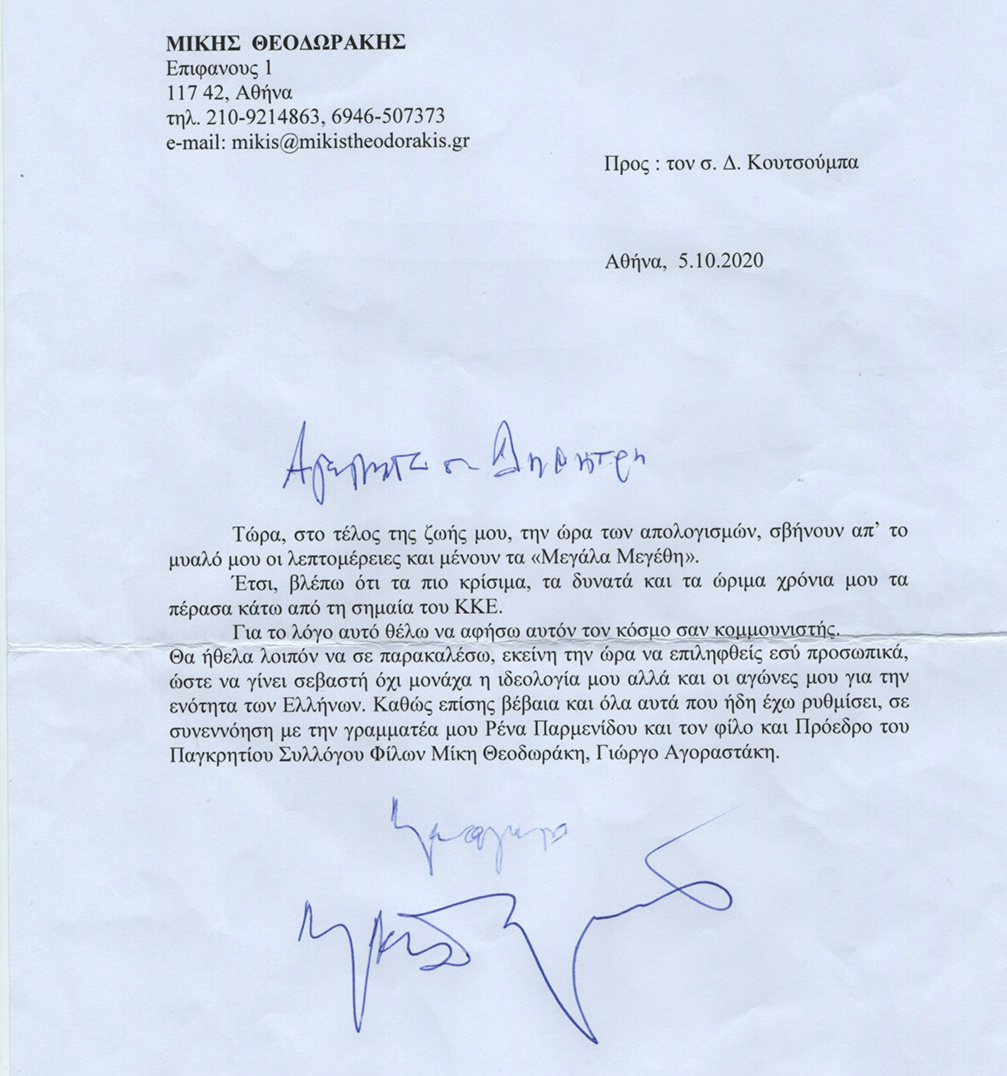 ΜΙΚΗΣ ΘΕΟΔΩΡΑΚΗΣ
Επιφανους 1
117 42, Αθήνα
τηλ. 210-9214863, 6946-507373
e-mail: mikis@mikistheodorakis.gr
Προς : τον σ. Δ. Κουτσούμπα
Αθήνα, 5.10.2020
Αγαπητέ σ. Δημήτρη
Τώρα, στο τέλος της ζωής μου, την ώρα των απολογισμών, σβήνουν απ’ το
μυαλό μου οι λεπτομέρειες και μένουν τα «Μεγάλα Μεγέθη».
Έτσι, βλέπω ότι τα πιο κρίσιμα, τα δυνατά και τα ώριμα χρόνια μου τα
πέρασα κάτω από τη σημαία του ΚΚΕ.
Για το λόγο αυτό θέλω να αφήσω αυτόν τον κόσμο σαν κομμουνιστής.
Θα ήθελα λοιπόν να σε παρακαλέσω, εκείνη την ώρα να επιληφθείς εσύ προσωπικά,
ώστε να γίνει σεβαστή όχι μονάχα η ιδεολογία μου αλλά και οι αγώνες μου για την
ενότητα των Ελλήνων. Καθώς επίσης βέβαια και όλα αυτά που ήδη έχω ρυθμίσει, σε
συνεννόηση με την γραμματέα μου Ρένα Παρμενίδου και τον φίλο και Πρόεδρο του
Παγκρητίου Συλλόγου Φίλων Μίκη Θεοδωράκη, Γιώργο Αγοραστάκη.